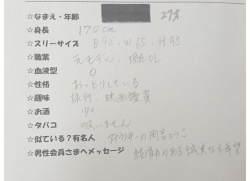 ☆なまえ・年齢 27才
☆身長 170cm
☆スリーサイズ B92・W65・H93
☆職業 元モデル、現在OL
☆血液型 O
☆性格 おっとりしている
☆趣味 旅行、映画鑑賞
☆お酒
☆タバコ 吸いません
☆似ている？有名人
☆男性会員さまへメッセージ 結婚のある誠実な